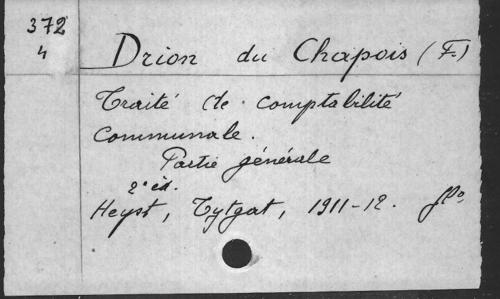 372
4
Drion du Chapois (F.)
Traité de comptabilité
communale.
Partie générale
2e éd.
Heyst, Tytgat, 1911-12. fo